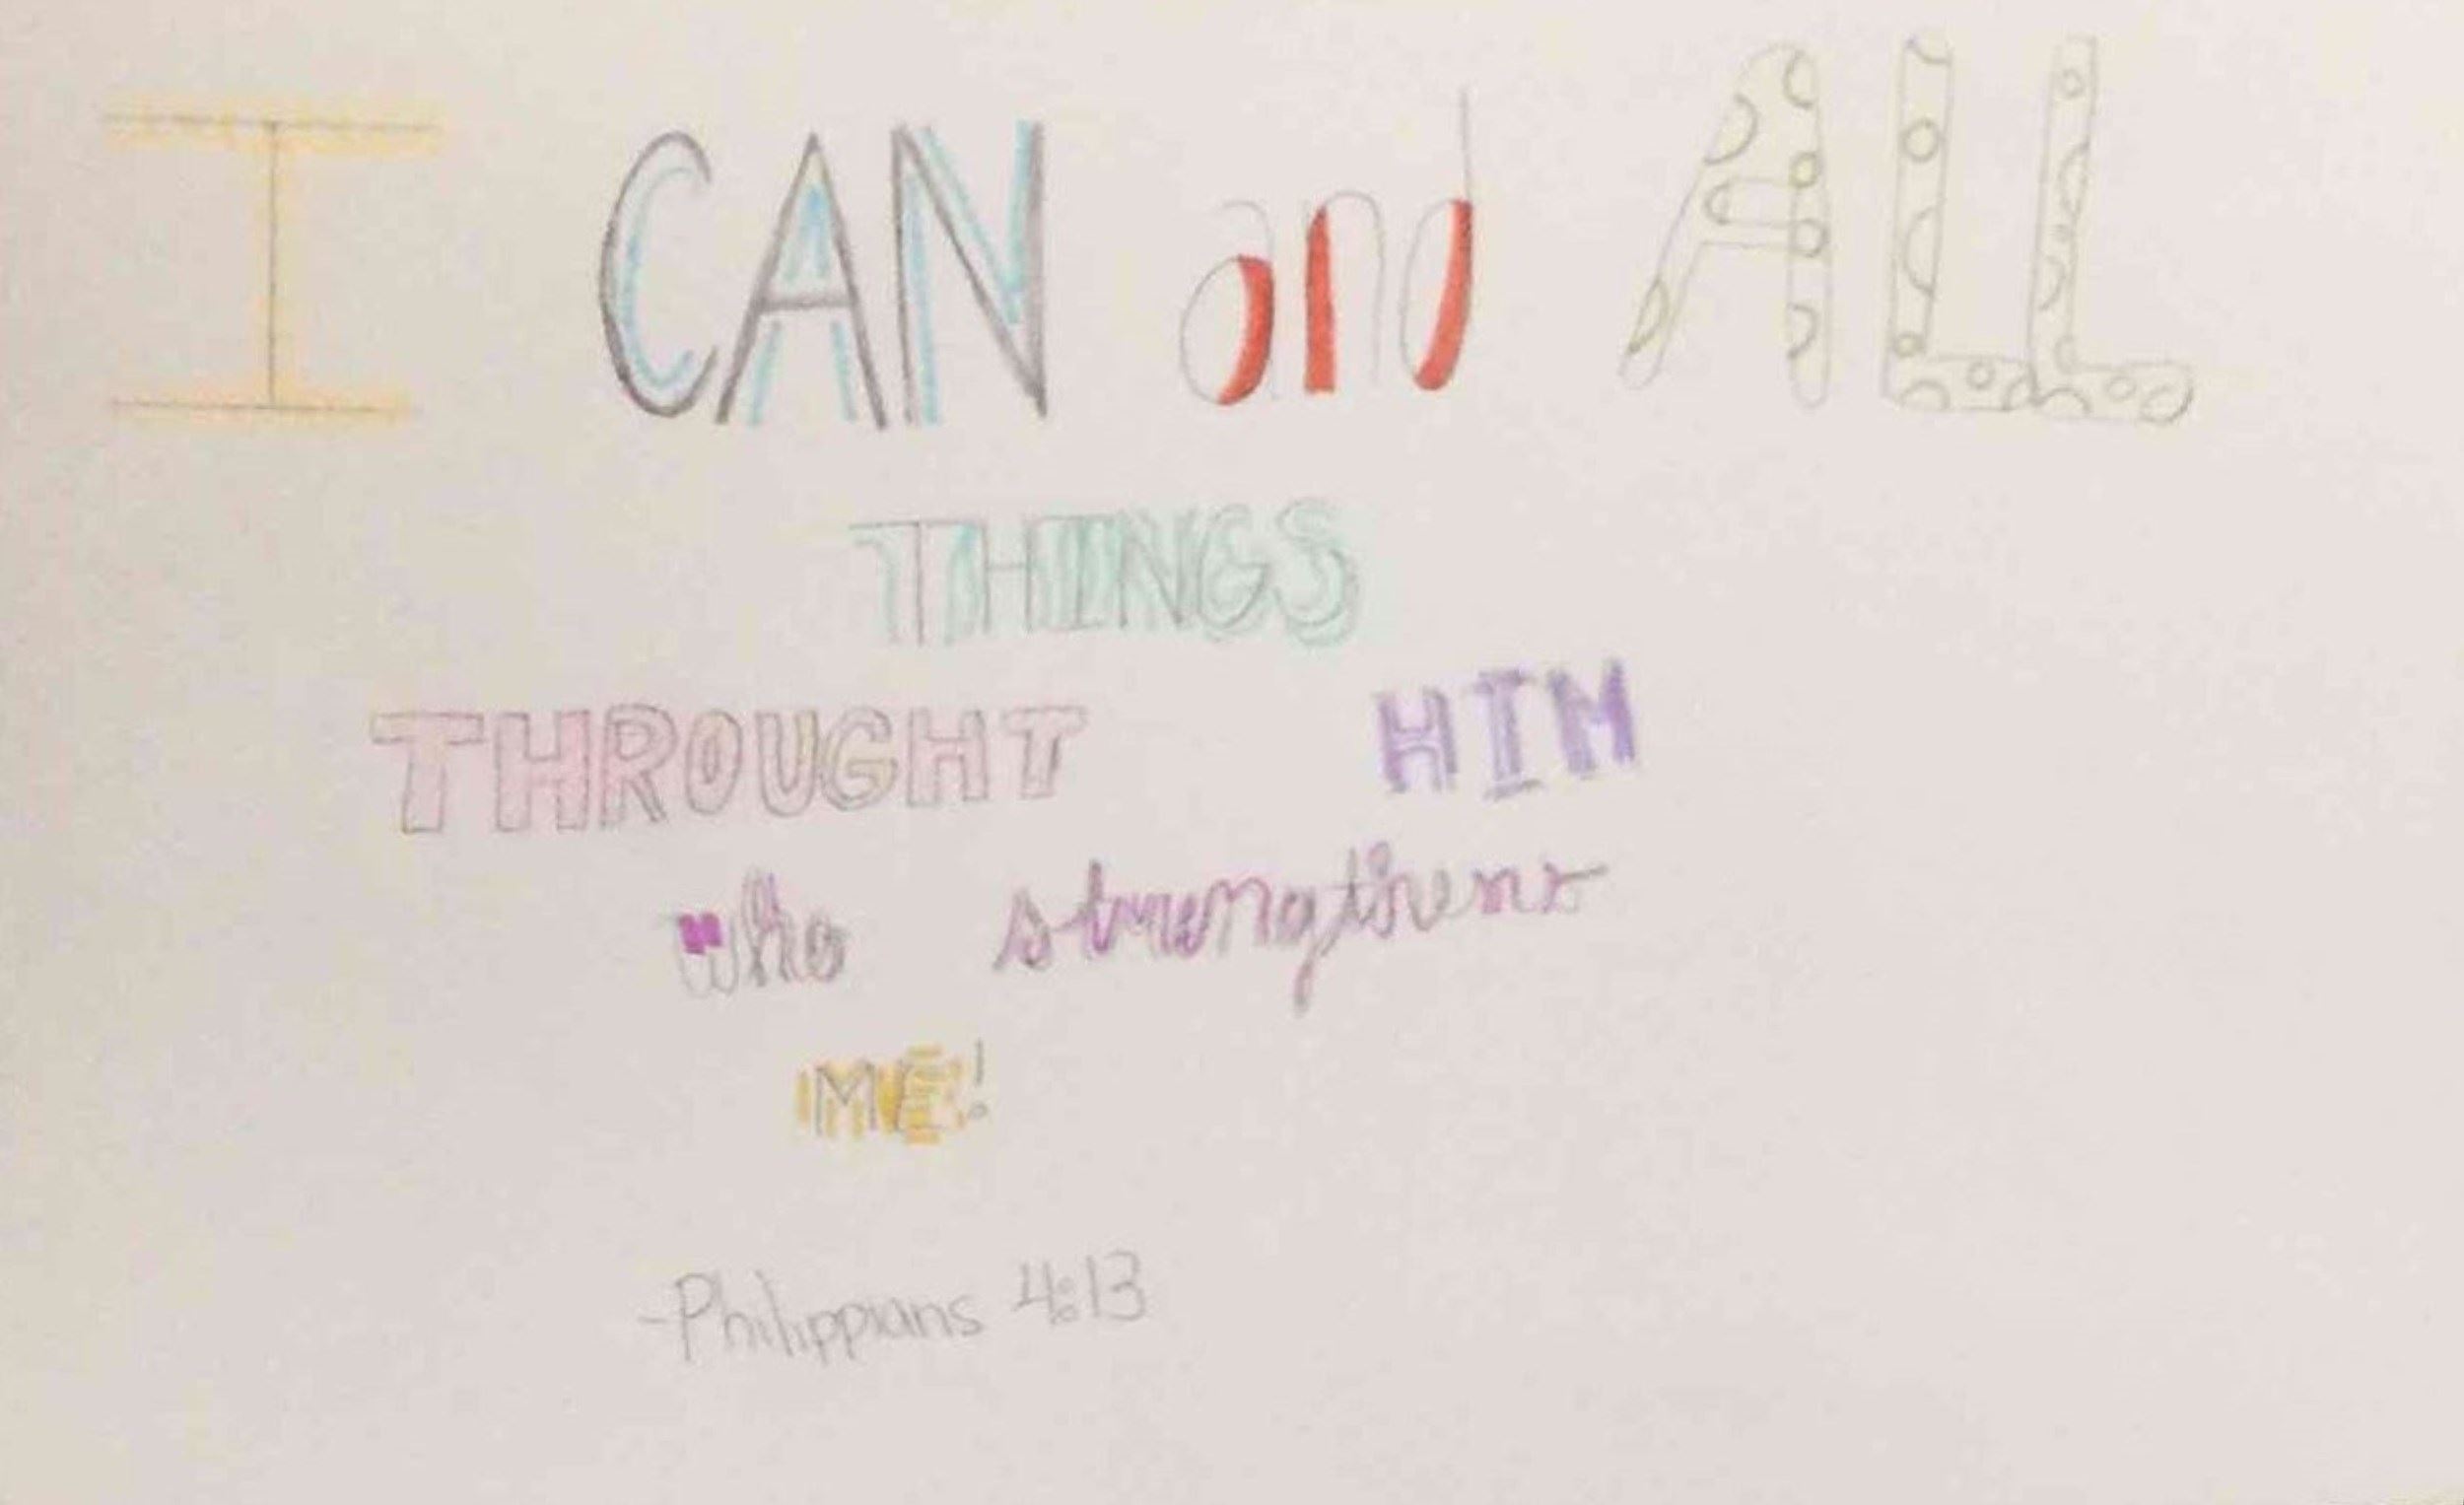 I CAN and ALL
THINGS
THROUGHT HIM
who strengthens
ME!
-Philippians 4:13